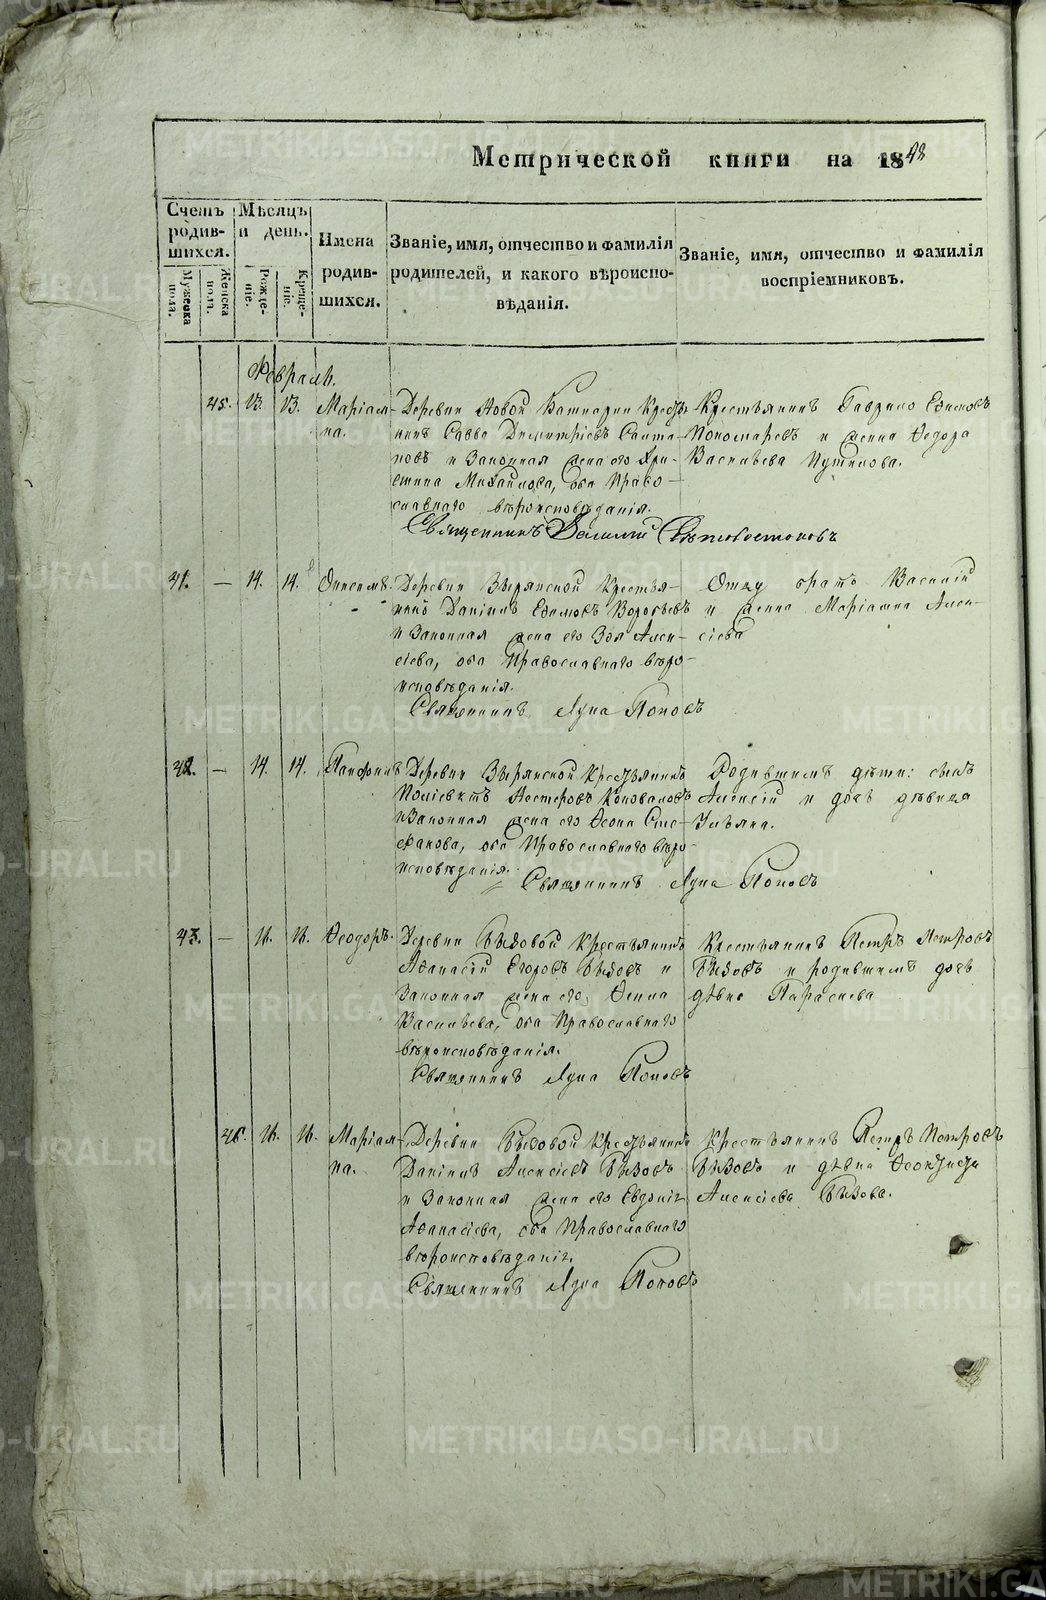 Метрической книги на 1848
Счетъ родив-шихся.
Мужеска пола.
Женска пола.
Мѣсяцъ и день.
Рожде-нiе.
Креще-нiе.
Имена родив-шихся.
Званiе, имя, отчество и фамилiя
родителей, и какого вѣроиспо-
вѣданiя.
Званiе, имя, отчество и фамилiя
воспрiемниковъ.
Февраль.
45. 13. 13. Марiам-
на.
Деревни Новой Крестья-
нинъ Савва Димитрiевъ
и законная жена его Хри-
стина Михайлова, оба Право-
славнаго вѣроисповѣданiя.
Священникъ Василiй
Крестьянинъ Гаврило Ефимовъ
Пономаревъ и женка Ѳедора
Васильева Путилова.
41. — 14. 14. Онисимъ.
Деревни Зырянской Крестья-
нинъ Данiилъ Ефимовъ Воробьевъ
и законная жена его Зоя Алек-
сiева, оба Православнаго вѣро-
исповѣданiя.
Священникъ Поповъ
Отцу братъ Василiй
и женка Марiамна Алек-
сiева
42. — 14. 14.
Деревни Зырянской Крестьянинъ
Полiевктъ Несторовъ Коноваловъ
и законная жена его Сте-
фанова, оба Православнаго вѣро-
исповѣданiя.
Священникъ Поповъ
Родившимъ дѣти: сынъ
Алексiй и дочь дѣвица
Ульяна.
43. — 16. 16. Ѳеодоръ.
Деревни Бызовой Крестьянинъ
Аѳанасiй Егоровъ Бызовъ и
законная жена его,
Васильева, оба Православнаго
вѣроисповѣданiя.
Священникъ Поповъ
Крестьянинъ Петръ Петровъ
Бызовъ и родившимъ дочь
дѣвка
46. 16. 16. Марiам-
на.
Деревни Бызовой Крестьянинъ
Данiилъ Алексiевъ Бызовъ
и законная жена его Евдокiя
Аѳанасiева, оба Православнаго
вѣроисповѣданiя.
Священникъ Поповъ
Крестьянинъ Петръ Петровъ
Бызовъ и дѣвка Ѳеоктиста
Алексiева Бызова.
METRIKI.GASO-URAL.RU